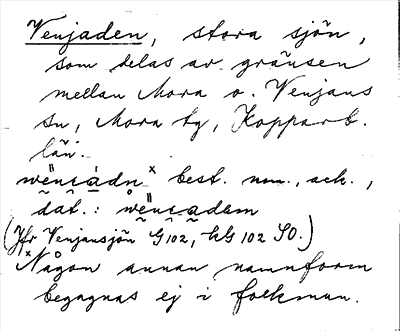 Venjaden, stora sjön,
som delas av gränsen
mellan Mora o. Venjans
sn, Mora tg, Kopparb.
län.
best. nom., ack.,
dat.:
(Jfr Venjansjön G 102, hG 102 SO.)
x Någon annan namnform
begagnas ej i folkmun.